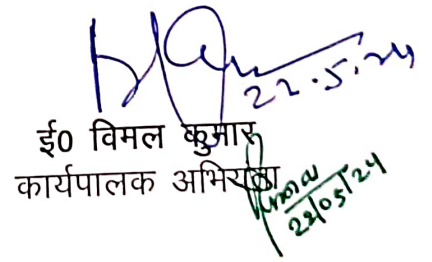 22.5.24
ई0 विमल कुमार
कार्यपालक अभियंता
22/05/24